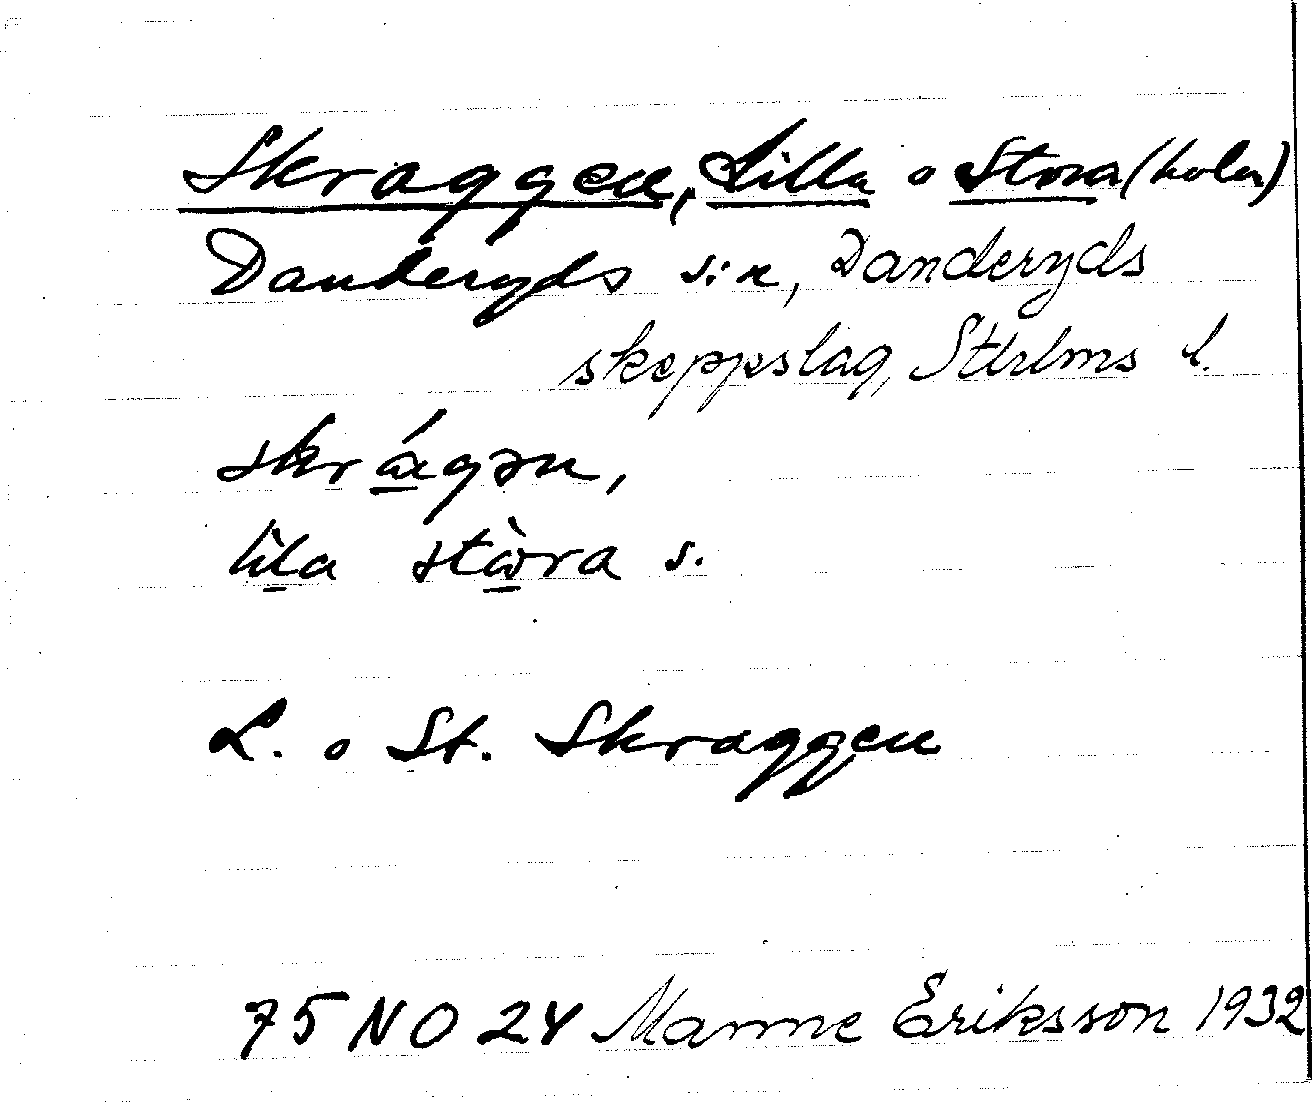 Skraggen, Lilla o Stora (holm)
Danderyds s:n, Danderyds
skeppslag, Sthlms l.
skrágən,
lìla stòra s.
L. o St. Skraggen
75 NO 24 Manne Eriksson 1932